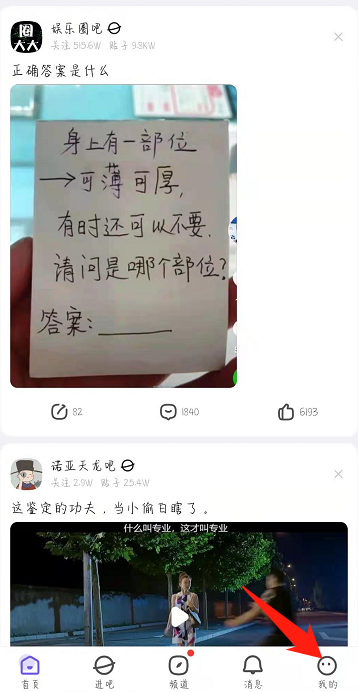 圈
大大
娱乐圈吧
关注 515.6W 贴子 9.8KW
正确答案是什么
身上有一部位
→可薄可厚,
有时还可以不要.
请问是哪个部位?
答案:______
82
1840
6193
诺亚天龙吧
关注 2.9W 贴子 25.4W
这鉴定的功夫，当小偷日瞎了。
什么叫专业，这才叫专业
首页
进吧
频道
消息
我的